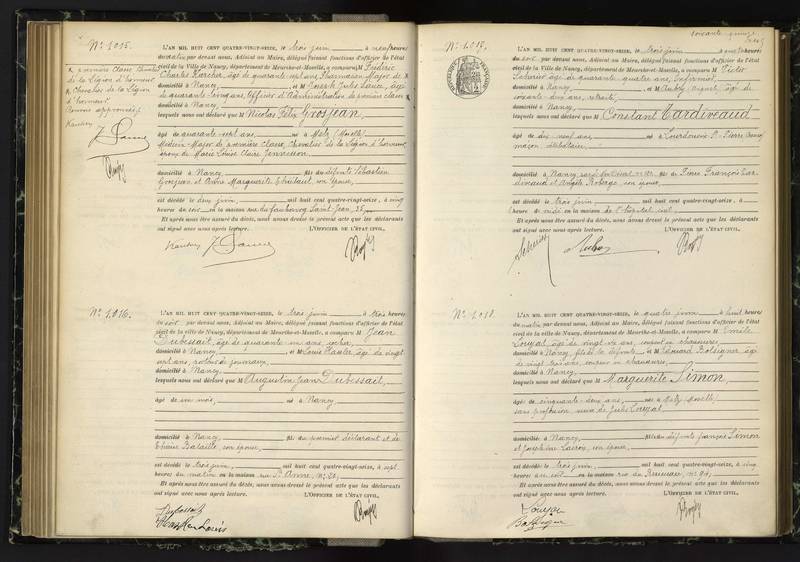 N° 1.015.
L'AN MIL HUIT CENT QUATRE-VINGT-SEIZE, le trois juin à neuf heures
du matin par devant nous, Adjoint au Maire, délégué faisant fonctions d'officier de l'état
civil de la Ville de Nancy, département de Meurthe-et-Moselle, a comparu M Frédéric
Charles Karcher, âgé de quarante sept ans, Pharmacien Major de
domicilié à Nancy et Joseph Jules Sauce, âgé
de quarante cinq ans, Officier d'Administration de première classe
domicilié à Nancy
lesquels nous ont déclaré que M Nicolas Félix Grosjean
âgé de quarante sept ans né à Metz (Moselle)
Médecin Major de première classe, Chevalier de la Légion d'honneur,
époux de Marie Louise Claire
domicilié à Nancy fils de défunts Sébastien
Grosjean et Anne Marguerite son épouse,
est décédé le deux juin mil huit cent quatre-vingt-seize, à cinq
heures du soir en la maison rue du faubourg Saint-Jean, 25
Et après nous être assuré du décès, nous avons dressé le présent acte que les déclarants
ont signé avec nous après lecture. L'OFFICIER DE L'ÉTAT CIVIL,
première Classe
de la Légion d'honneur
Chevalier de la Légion
d'honneur
N° 1.016.
L'AN MIL HUIT CENT QUATRE-VINGT-SEIZE, le trois juin à trois heures
du soir par devant nous, Adjoint au Maire, délégué faisant fonctions d'officier de l'état
civil de la ville de Nancy, département de Meurthe-et-Moselle, a comparu M Jean
Dubessait, âgé de quarante un ans, cocher,
domicilié à Nancy et Louis Hasler âgé de vingt
sept ans, de journaux,
domicilié à Nancy
lesquels nous ont déclaré que M Augustin Jean Dubessait,
âgé de un mois, né à Nancy
domicilié à Nancy fils du premier déclarant et de
Bataille, son épouse,
est décédé le trois juin, mil huit cent quatre-vingt-seize, à sept
heures du matin en la maison rue Ste Anne, n°
Et après nous être assuré du décès, nous avons dressé le présent acte que les déclarants
ont signé avec nous après lecture. L'OFFICIER DE L'ÉTAT CIVIL,
Dubessait
Louis
N° 1.017.
L'AN MIL HUIT CENT QUATRE-VINGT-SEIZE, le trois juin à heures
du soir par devant nous, Adjoint au Maire, délégué faisant fonctions d'officier de l'état
civil de la Ville de Nancy, département de Meurthe-et-Moselle, a comparu M Victor
âgé de quarante quatre ans, Infirmier,
domicilié à Nancy et Aubry âgé de
soixante deux ans, retraité,
domicilié à Nancy
lesquels nous ont déclaré que M Constant Tardiveaud
âgé de dix neuf ans, né à Lourdoueix St Pierre
maçon, célibataire
domicilié à Nancy fils de Pierre François Tar
diveaud et Angèle son épouse,
est décédé le trois juin mil huit cent quatre-vingt-seize, à
heure de midi en la maison de l'hôpital civil
Et après nous être assuré du décès, nous avons dressé le présent acte que les déclarants
ont signé avec nous après lecture. L'OFFICIER DE L'ÉTAT CIVIL,
Aubry
N° 1.018.
L'AN MIL HUIT CENT QUATRE-VINGT-SEIZE, le quatre juin à huit heures
du matin par devant nous, Adjoint au Maire, délégué faisant fonctions d'officier de l'état
civil de la ville de Nancy, département de Meurthe-et-Moselle, a comparu M Emile
âgé de vingt ans, coupeur en chaussures,
domicilié à Nancy, fils de la défunte et Edouard âgé
de vingt trois ans, coupeur en chaussures,
domicilié à Nancy
lesquels nous ont déclaré que M Marguerite Simon,
âgée de cinquante deux ans, née à Metz (Moselle)
sans profession, veuve de Jules
domiciliée à Nancy fille de défunts François Simon
et Joséphine son épouse,
est décédée le trois juin, mil huit cent quatre-vingt-seize, à cinq
heures du soir en la maison rue du
Et après nous être assuré du décès, nous avons dressé le présent acte que les déclarants
ont signé avec nous après lecture. L'OFFICIER DE L'ÉTAT CIVIL,